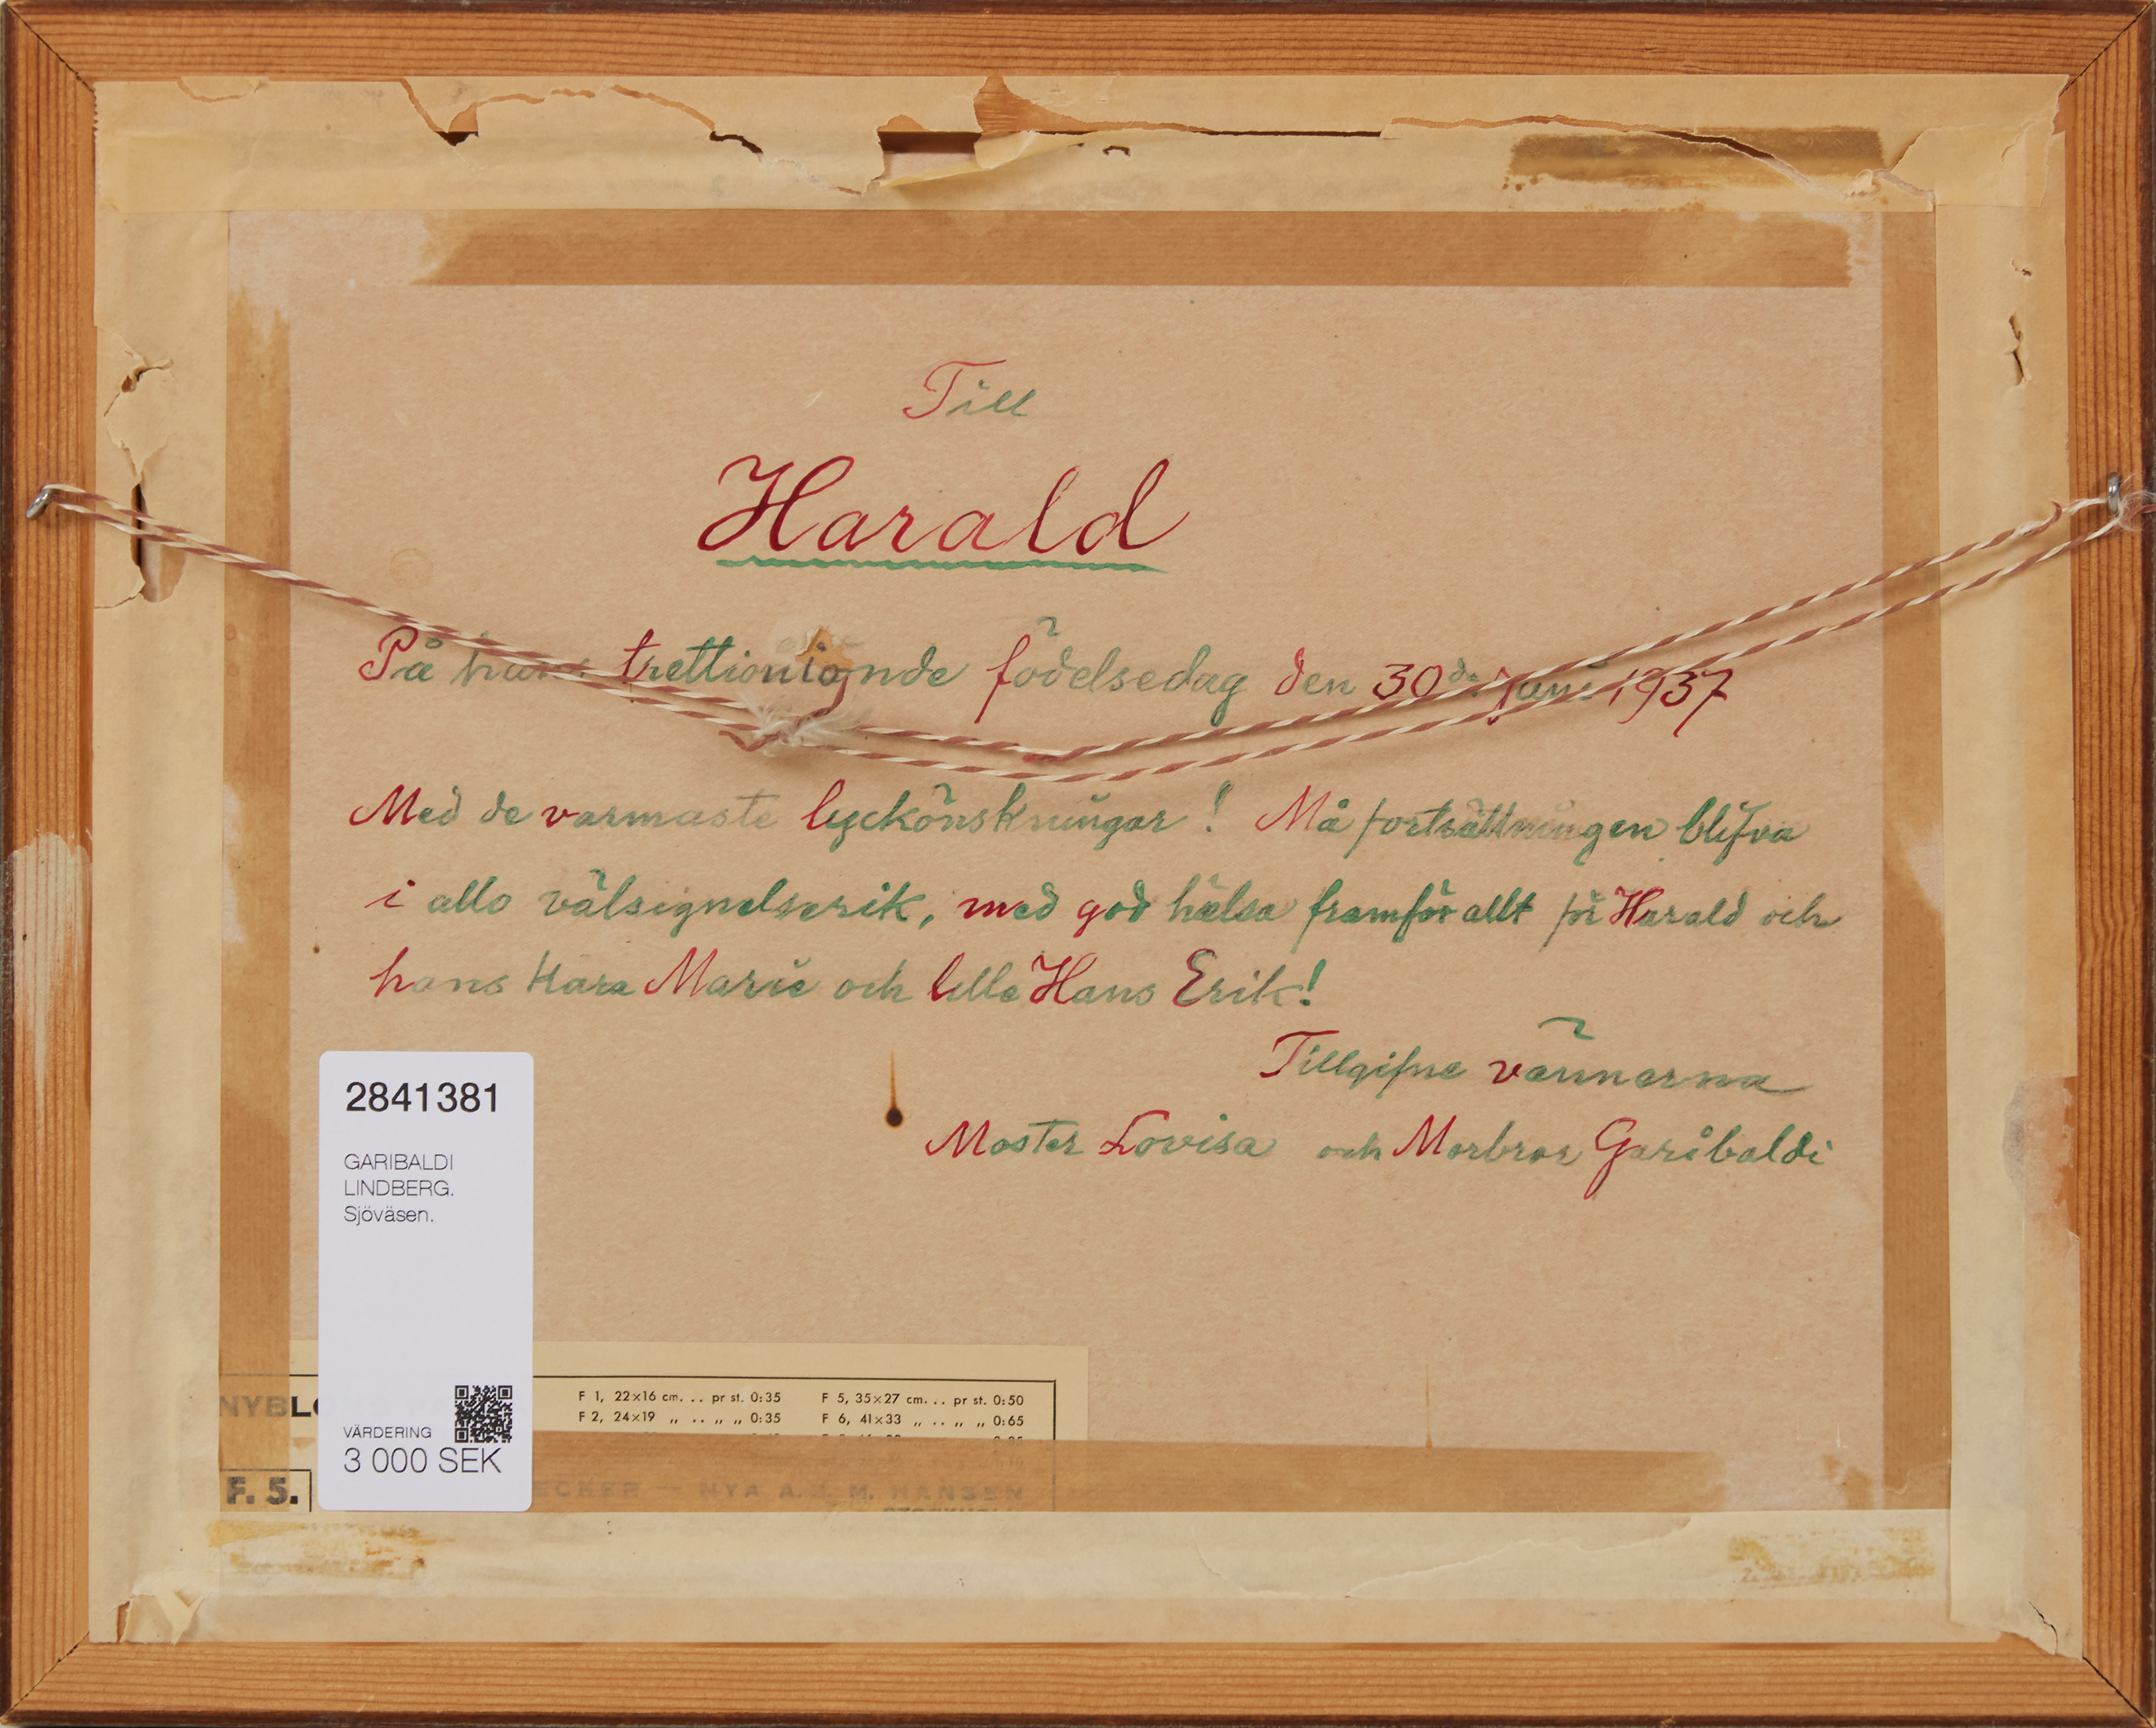 Till
Harald
På hans trettionionde födelsedag den 30de Juni 1937
Med de varmaste lyckönskningar! Må fortsättningen blifva
i allo välsignelserik, med god hälsa framför allt för Harald och
hans kära Marie och lille Hans Erik!
Tillgifne vännerna
Moster Lovisa och Morbror Garibaldi
2841381
GARIBALDI
LINDBERG.
Sjöväsen.
VÄRDERING
3 000 SEK
F 1, 22×16 cm. .. pr st. 0:35 F 5, 35×27 cm. .. pr st. 0:50
F 2, 24×19 „ .. „ „ 0:35 F 6, 41×33 „ .. „ „ 0:65
F. 5.
NYA A. B. M. HANSEN